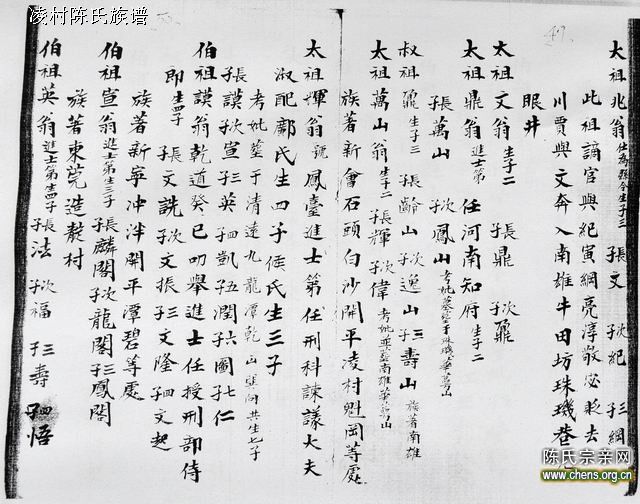 凌村陈氏族谱
49.
太祖兆翁仕為縣令生子三 長文 次紀 三子綱
此祖謫官與紀寅綱亮淳敬宓貶去
川賈與文奔入南雄牛田坊珠璣巷
眼井
太祖文翁生子二 長鼎 次鼐
太祖鼎翁進士第 任河南知府生子二
長子萬山 次子鳳山
叔祖鼐生子三 長子齡山 次子逸山 三子壽山 族著南雄
太祖萬山翁生子二 長子輝 次子偉
族著新會石頭白沙開平凌村魁岡等處
太祖輝翁號鳳臺進士第任刑科諫議大夫
淑配鄺氏生四子 侯氏生三子
考妣墓于清遠九龍潭乾山巽向共生七子
長子謨 次子宣 三子英 四子凱 五子閏 六子圖 七子仁
伯祖謨翁乾道癸巳叨舉進士任授刑部侍
郎生四子 長子文詵 次子文振 三子文隆 四子文起
族著新寧冲泮開平潭碧等處
伯祖宣翁進士第生三子 長子麟閣 次子龍閣 三子鳳閣
族著東莞造靛村
伯祖英翁進士第生四子 長子法 次子福 三子壽 四子悟
陈氏宗亲网
www.chens.org.cn